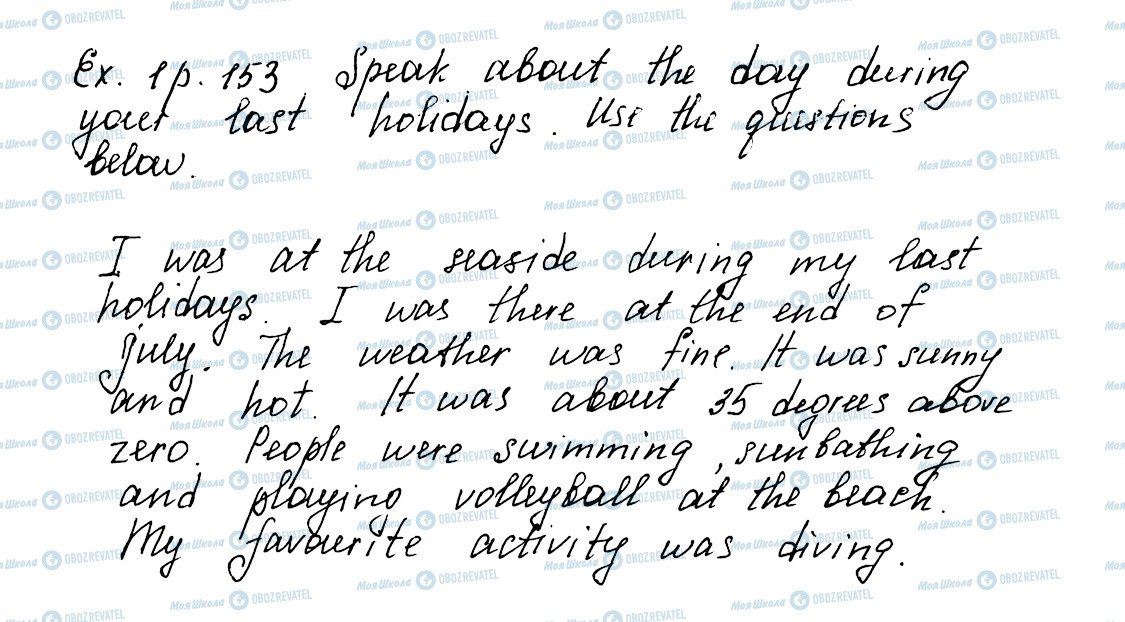 Ex. 1 p. 153 Speak about the day during
your last holidays. Use the questions
below.
I was at the seaside during my last
holidays. I was there at the end of
july. The weather was fine. It was sunny
and hot. It was about 35 degrees above
zero. People were swimming, sunbathing
and playing volleyball at the beach.
My favourite activity was diving.